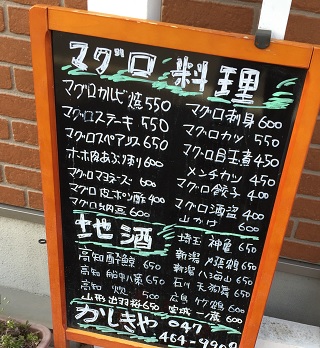 マグロ料理
マグロカルビ焼 550
マグロステーキ 550
マグロスペアリブ 650
ホホ肉あぶり刺 600
マグロマヨネーズ 600
マグロ皮ポン酢 400
マグロ納豆 600
マグロ刺身 600
マグロカツ 550
マグロ目玉煮 450
メンチカツ 450
マグロ餃子 400
マグロ酒盗 400
山かけ 600
地酒
高知 酔鯨 650
高知 船中八策 650
高知 500
山形 出羽桜 650
埼玉 神亀 650
新潟 〆張鶴 650
新潟 八海山 650
石川 天狗舞 650
広島 竹鶴 600
宮城 一ノ蔵 600
かしきや 047
464-990